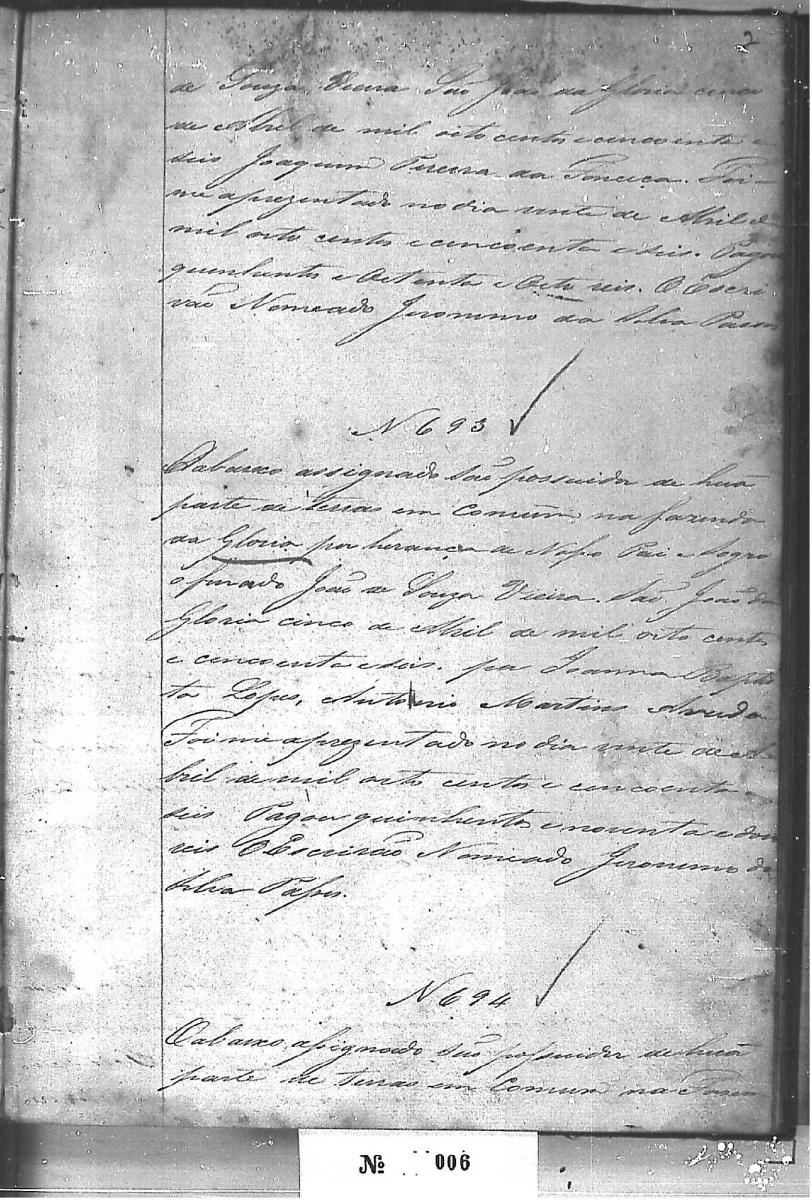 2
de Souza Vieira São João da Gloria cinco
de Abril de mil oito centos e cincoenta e
seis Joaquim Pereira da Fonseca. Foi-
me aprezentado no dia vinte de Abril de
mil oito centos e cincoenta e seis. Pagou
quinhentos e Oitenta e Oito reis. O Escri
vão Nomeado Jeronimo da Silva Passos
N 693
Oabaixo assignado são possuida de huã
parte de terras em Comum na fazenda
da Gloria por herança de Nosso Pai e Sogro
o finado João de Souza Vieira. São João da
Gloria cinco de Abril de mil oito centos
e cincoenta e seis. por Joanna Baptis
ta Lopes, Antonio Martins Arruda
Foi me aprezentado no dia vinte de A
bril de mil oito centos e cincoenta e
seis Pagou quinhentos e noventa e dous
reis O Escrivão Nomeado Jeronimo da
Silva Passos.
N 694
Oabaixo assignado são possuidor de huã
parte de terras em Comum na
Nº 006